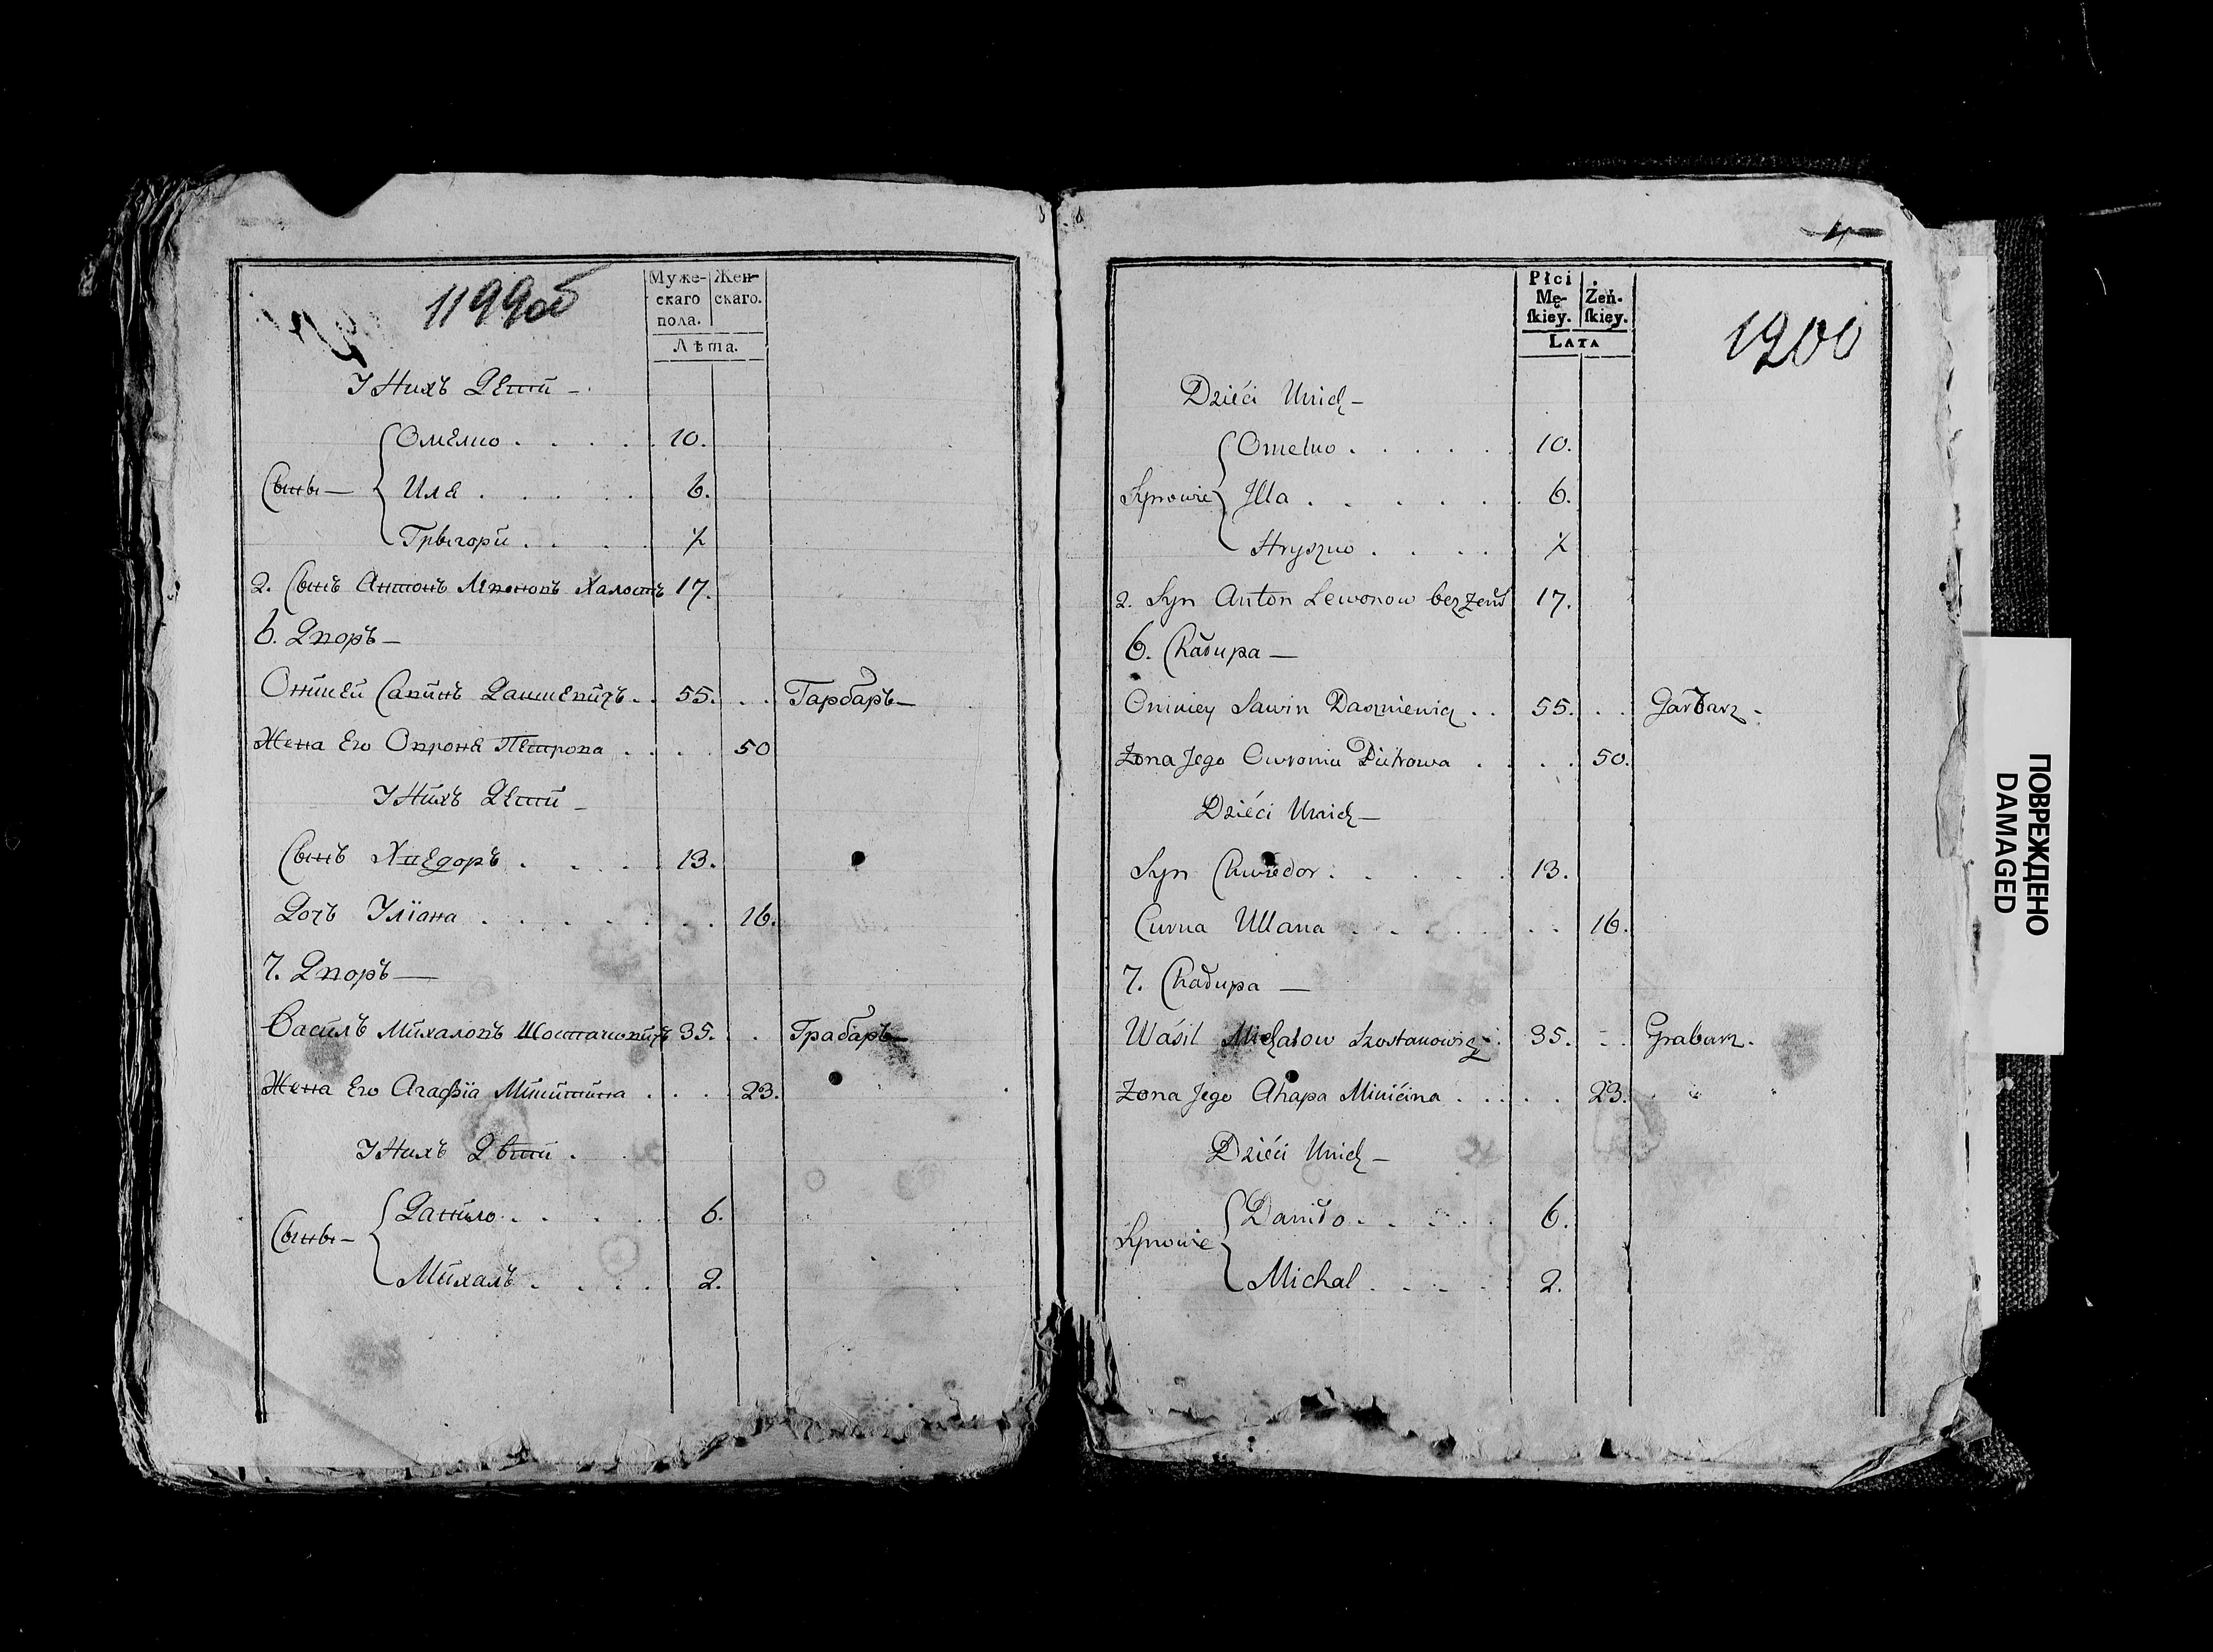 1199об
Муже-
скаго
пола.
Жен-
скаго.
Лѣта.
У Нихъ Дети -
Омелко . . . . . 10.
Сыны — Иля . . . . . 6.
Грыгори . . . . ½
2. Сынъ Антонъ Левоновъ Халостъ 17.
6. Дворъ —
Оникей Савинъ Дашкевичъ . . 55. . . Гарбаръ —
Жена Его Овроня Петрова . . . . 50
У Нихъ Дети -
Сынъ Хведоръ . . . . 13.
Дочъ Уліана . . . . . . . . 16.
7. Дворъ —
Василь Михаловъ Шостаковичъ 35. . Грабаръ —
Жена Его Агафіа Микитина . . . . 23.
У Нихъ Дѣти .
Сыны — Данило . . . . . 6.
Михалъ . . . . 2.
4
1200
Płci
Mę-
ſkiey.
Żeń-
ſkiey.
LATA
Dzieći Unich —
Omelko . . . . . 10.
Synowie Illa . . . . . . 6.
Hryszko . . . . ½
2. Syn Anton Lewonow bez żeńs 17.
6. Chałupa —
Onikiey Sawin Daszkiewicz . . 55. . . Garbarz -
Żona Jego Owronia Piotrowa . . . . 50.
Dzieći Unich —
Syn Chwiedor . . . . . 13.
Curka Ullana . . . . . . . 16.
7. Chałupa —
Waśil Michałow Szostakowicz . 35. - . Grabarz .
Żona Jego Ahapa Mikićina . . . . . 23.
Dzieći Unich —
Synowie Daniło . . . . . 6.
Michal . . . . . 2.
ПОВРЕЖДЕНО
DAMAGED